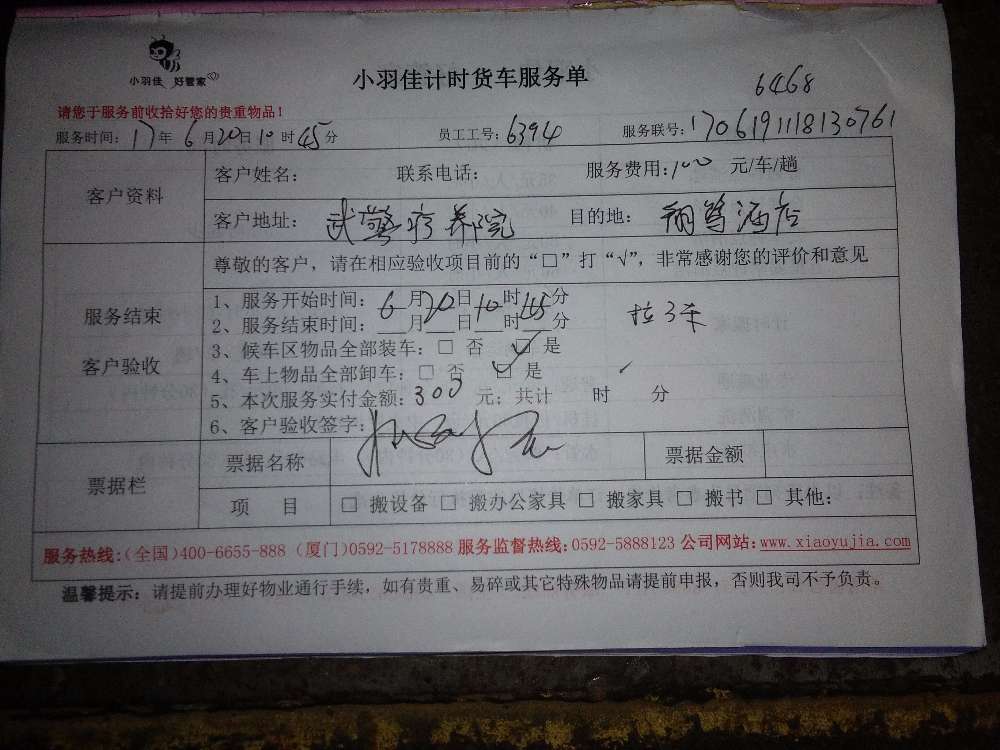 小羽佳 好管家
小羽佳计时货车服务单
6468
请您于服务前收拾好您的贵重物品！
服务时间：17年6月20日10时45分 员工工号：6394 服务联号：1706191118130761
客户资料
客户姓名： 联系电话： 服务费用：100 元/车/趟
客户地址：武警疗养院 目的地：翔鹭酒店
服务结束
客户验收
尊敬的客户，请在相应验收项目前的“□”打“√”，非常感谢您的评价和意见
1、服务开始时间：6月20日10时45分
2、服务结束时间：___月___日___时___分
拉3车
3、候车区物品全部装车：□ 否 ☑ 是
4、车上物品全部卸车：□ 否 ☑ 是
5、本次服务实付金额：300 元；共计 时 分
6、客户验收签字：
票据栏
票据名称 票据金额
项 目 □ 搬设备 □ 搬办公家具 □ 搬家具 □ 搬书 □ 其他：
服务热线：（全国）400-6655-888（厦门）0592-5178888 服务监督热线：0592-5888123 公司网站：www.xiaoyujia.com
温馨提示：请提前办理好物业通行手续，如有贵重、易碎或其它特殊物品请提前申报，否则我司不予负责。